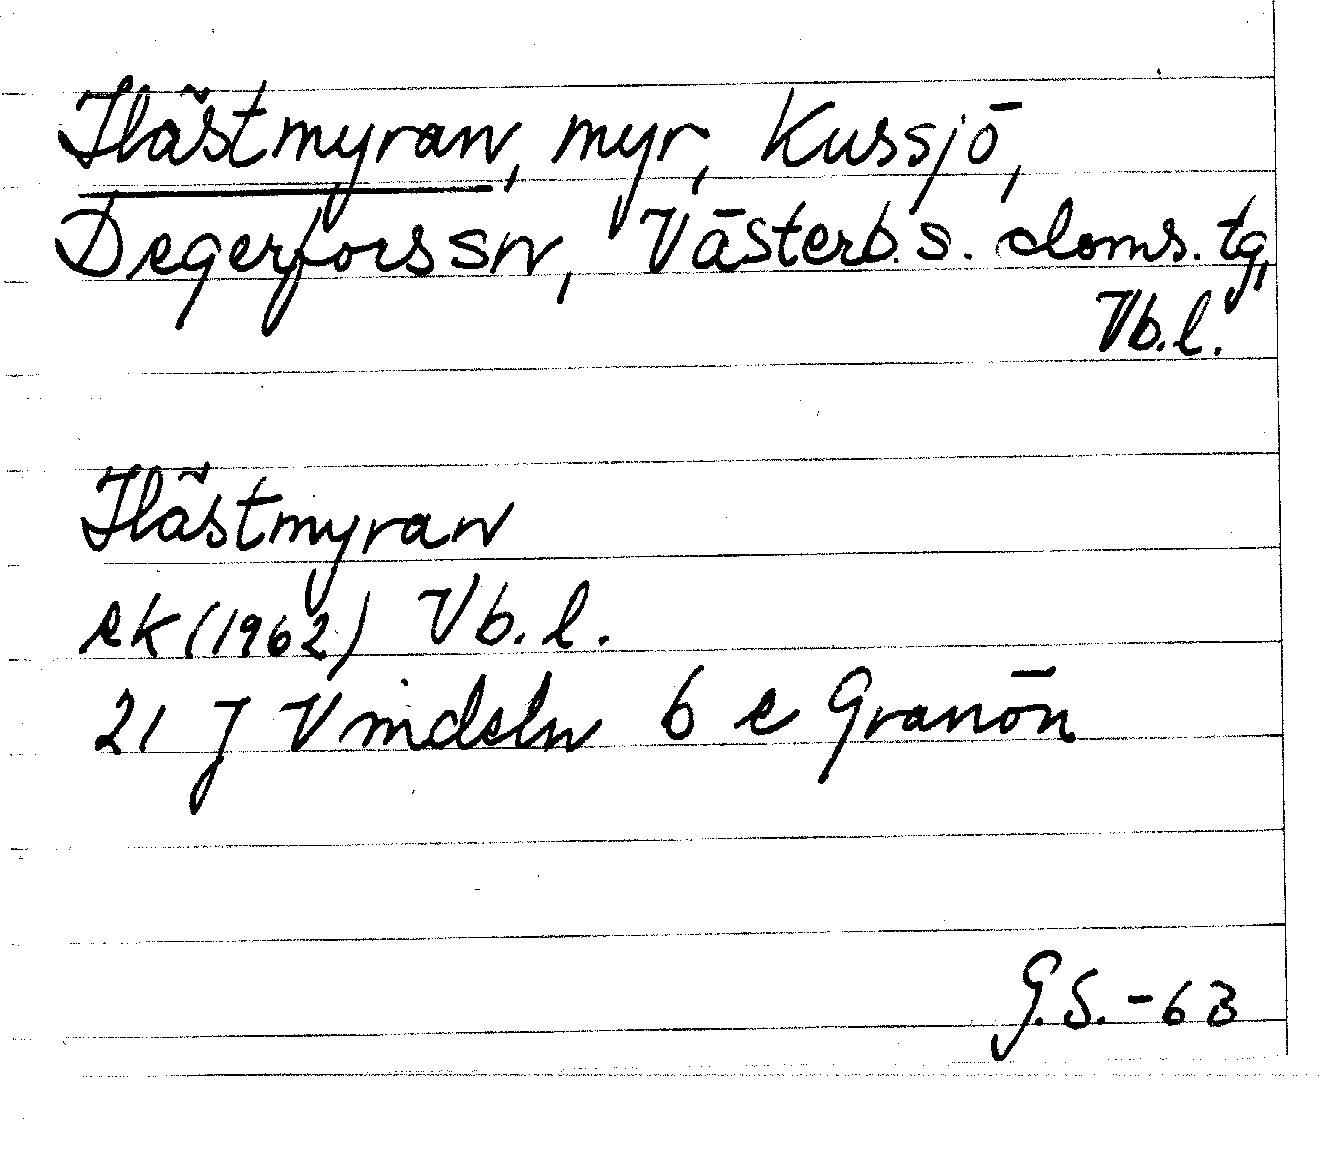 Hästmyran, myr, Kussjö,
Degerfors sn, Västerb. s. doms. tg,
Vb.l.
Hästmyran
ek (1962) Vb.l.
21 J Vindeln 6 e Granön
G.S. -63